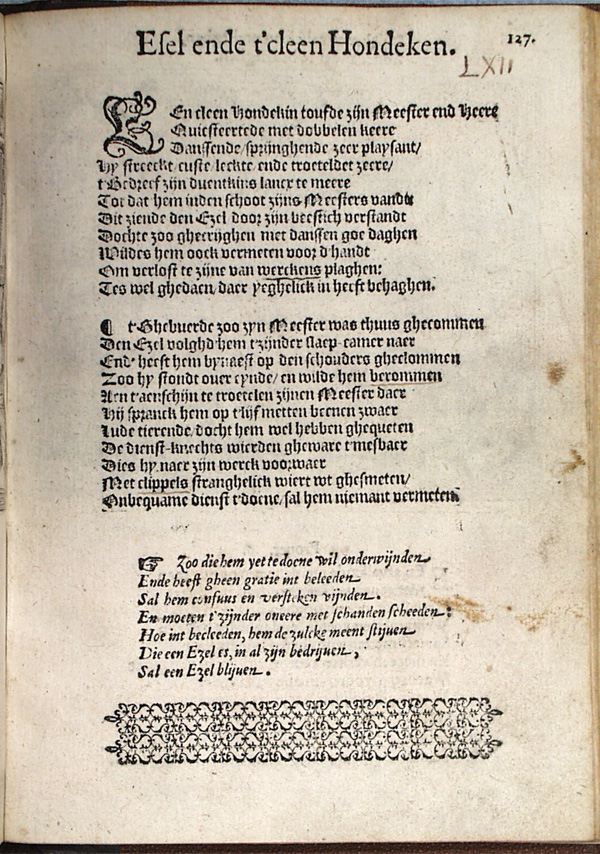 Esel ende t'cleen Hondeken.
127.
LXII
EEn cleen Hondekin toufde zijn Meester end Heere
Quicsteertede met dobbelen keere
Danssende/sprijnghende zeer playsant/
Hy streeckt/custe/leckte/ende troeteldet zeere/
t'Gedreef zijn duentkins lancx te meere
Tot dat hem inden schoot zijns Meesters vandt
Dit ziende den Ezel door zijn beestich verstandt
Dochte zoo ghecrijghen met danssen goe daghen
Wildes hem oock vermeten voor d'handt
Om verlost te zijne van werckens plaghen:
Tes wel ghedaen/daer yeghelick in heeft behaghen.
¶ t'Ghebuerde zoo zyn Meester was thuus ghecommen
Den Ezel volghd hem t'zijnder slaep-camer naer
End' heeft hem bynaest op den schouders gheclommen
Zoo hy stondt over eynde/en wilde hem berommen
Aen t'aenschijn te troetelen zijnen Meester daer
Hij spranck hem op t'lijf metten beenen zwaer
Lude tierende/docht hem wel hebben ghequeten
De dienst-knechts wierden gheware t'mesbaer
Dies hy naer zijn werck voorwaer
Met clippels stranghelick wiert wt ghesmeten/
Onbequame dienst t'doene/sal hem niemant vermeten.
☞ Zoo die hem yet te doene wil onderwijnden
Ende heeft gheen gratie int beleeden
Sal hem confuus en versteken vijnden.
En moeten t'zijnder oneere met schanden scheeden:
Hoe int becleeden, hem de zulcke meent stijuen
Die een Ezel es, in al zijn bedrijuen,
Sal een Ezel blijuen.